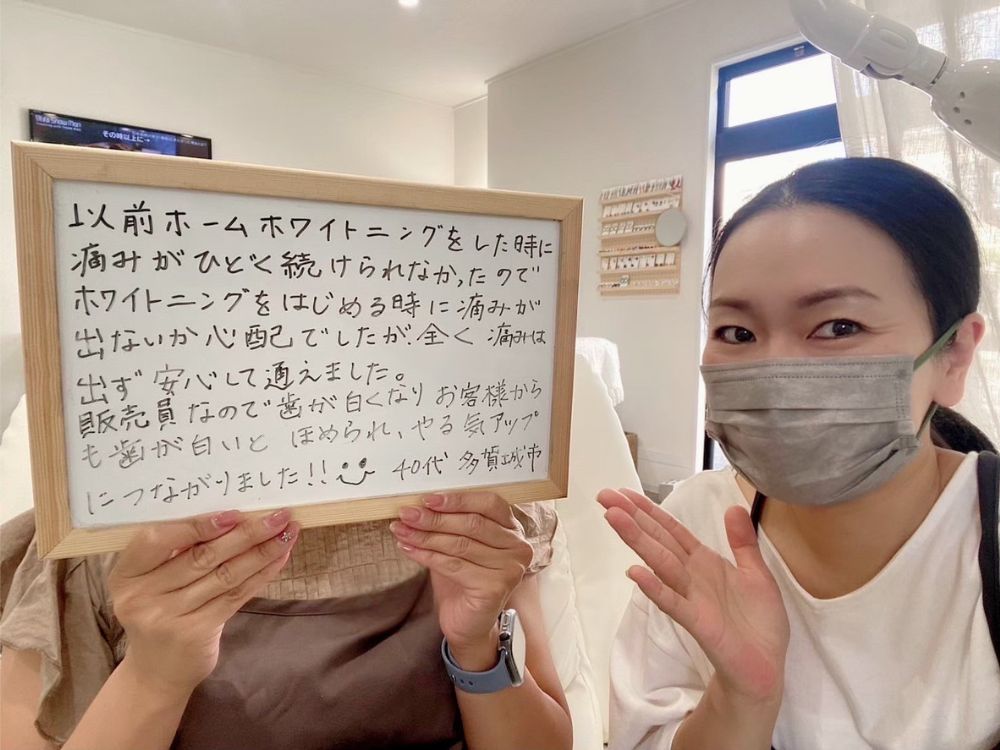 その時以上に
以前ホームホワイトニングをした時に
痛みがひどく続けられなかったので
ホワイトニングをはじめる時に痛みが
出ないか心配でしたが、全く痛みは
出ず安心して通えました。
販売員なので歯が白くなりお客様から
も歯が白いと ほめられ、やる気アップ
につながりました!! 40代 多賀城市